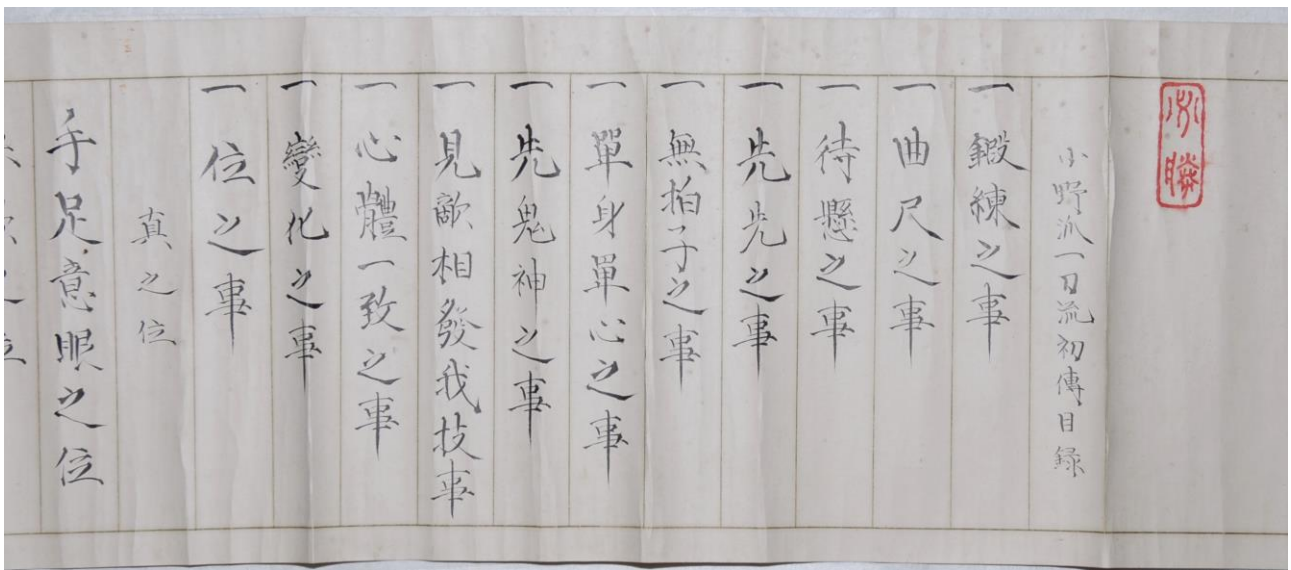 必勝
小野派一刀流初傳目録
一鍛練之事
一曲尺之事
一待懸之事
一先先之事
一無拍子之事
一單身單心之事
一先鬼神之事
一見敵相發我技事
一心體一致之事
一變化之事
一位之事
真之位
手足意眼之位